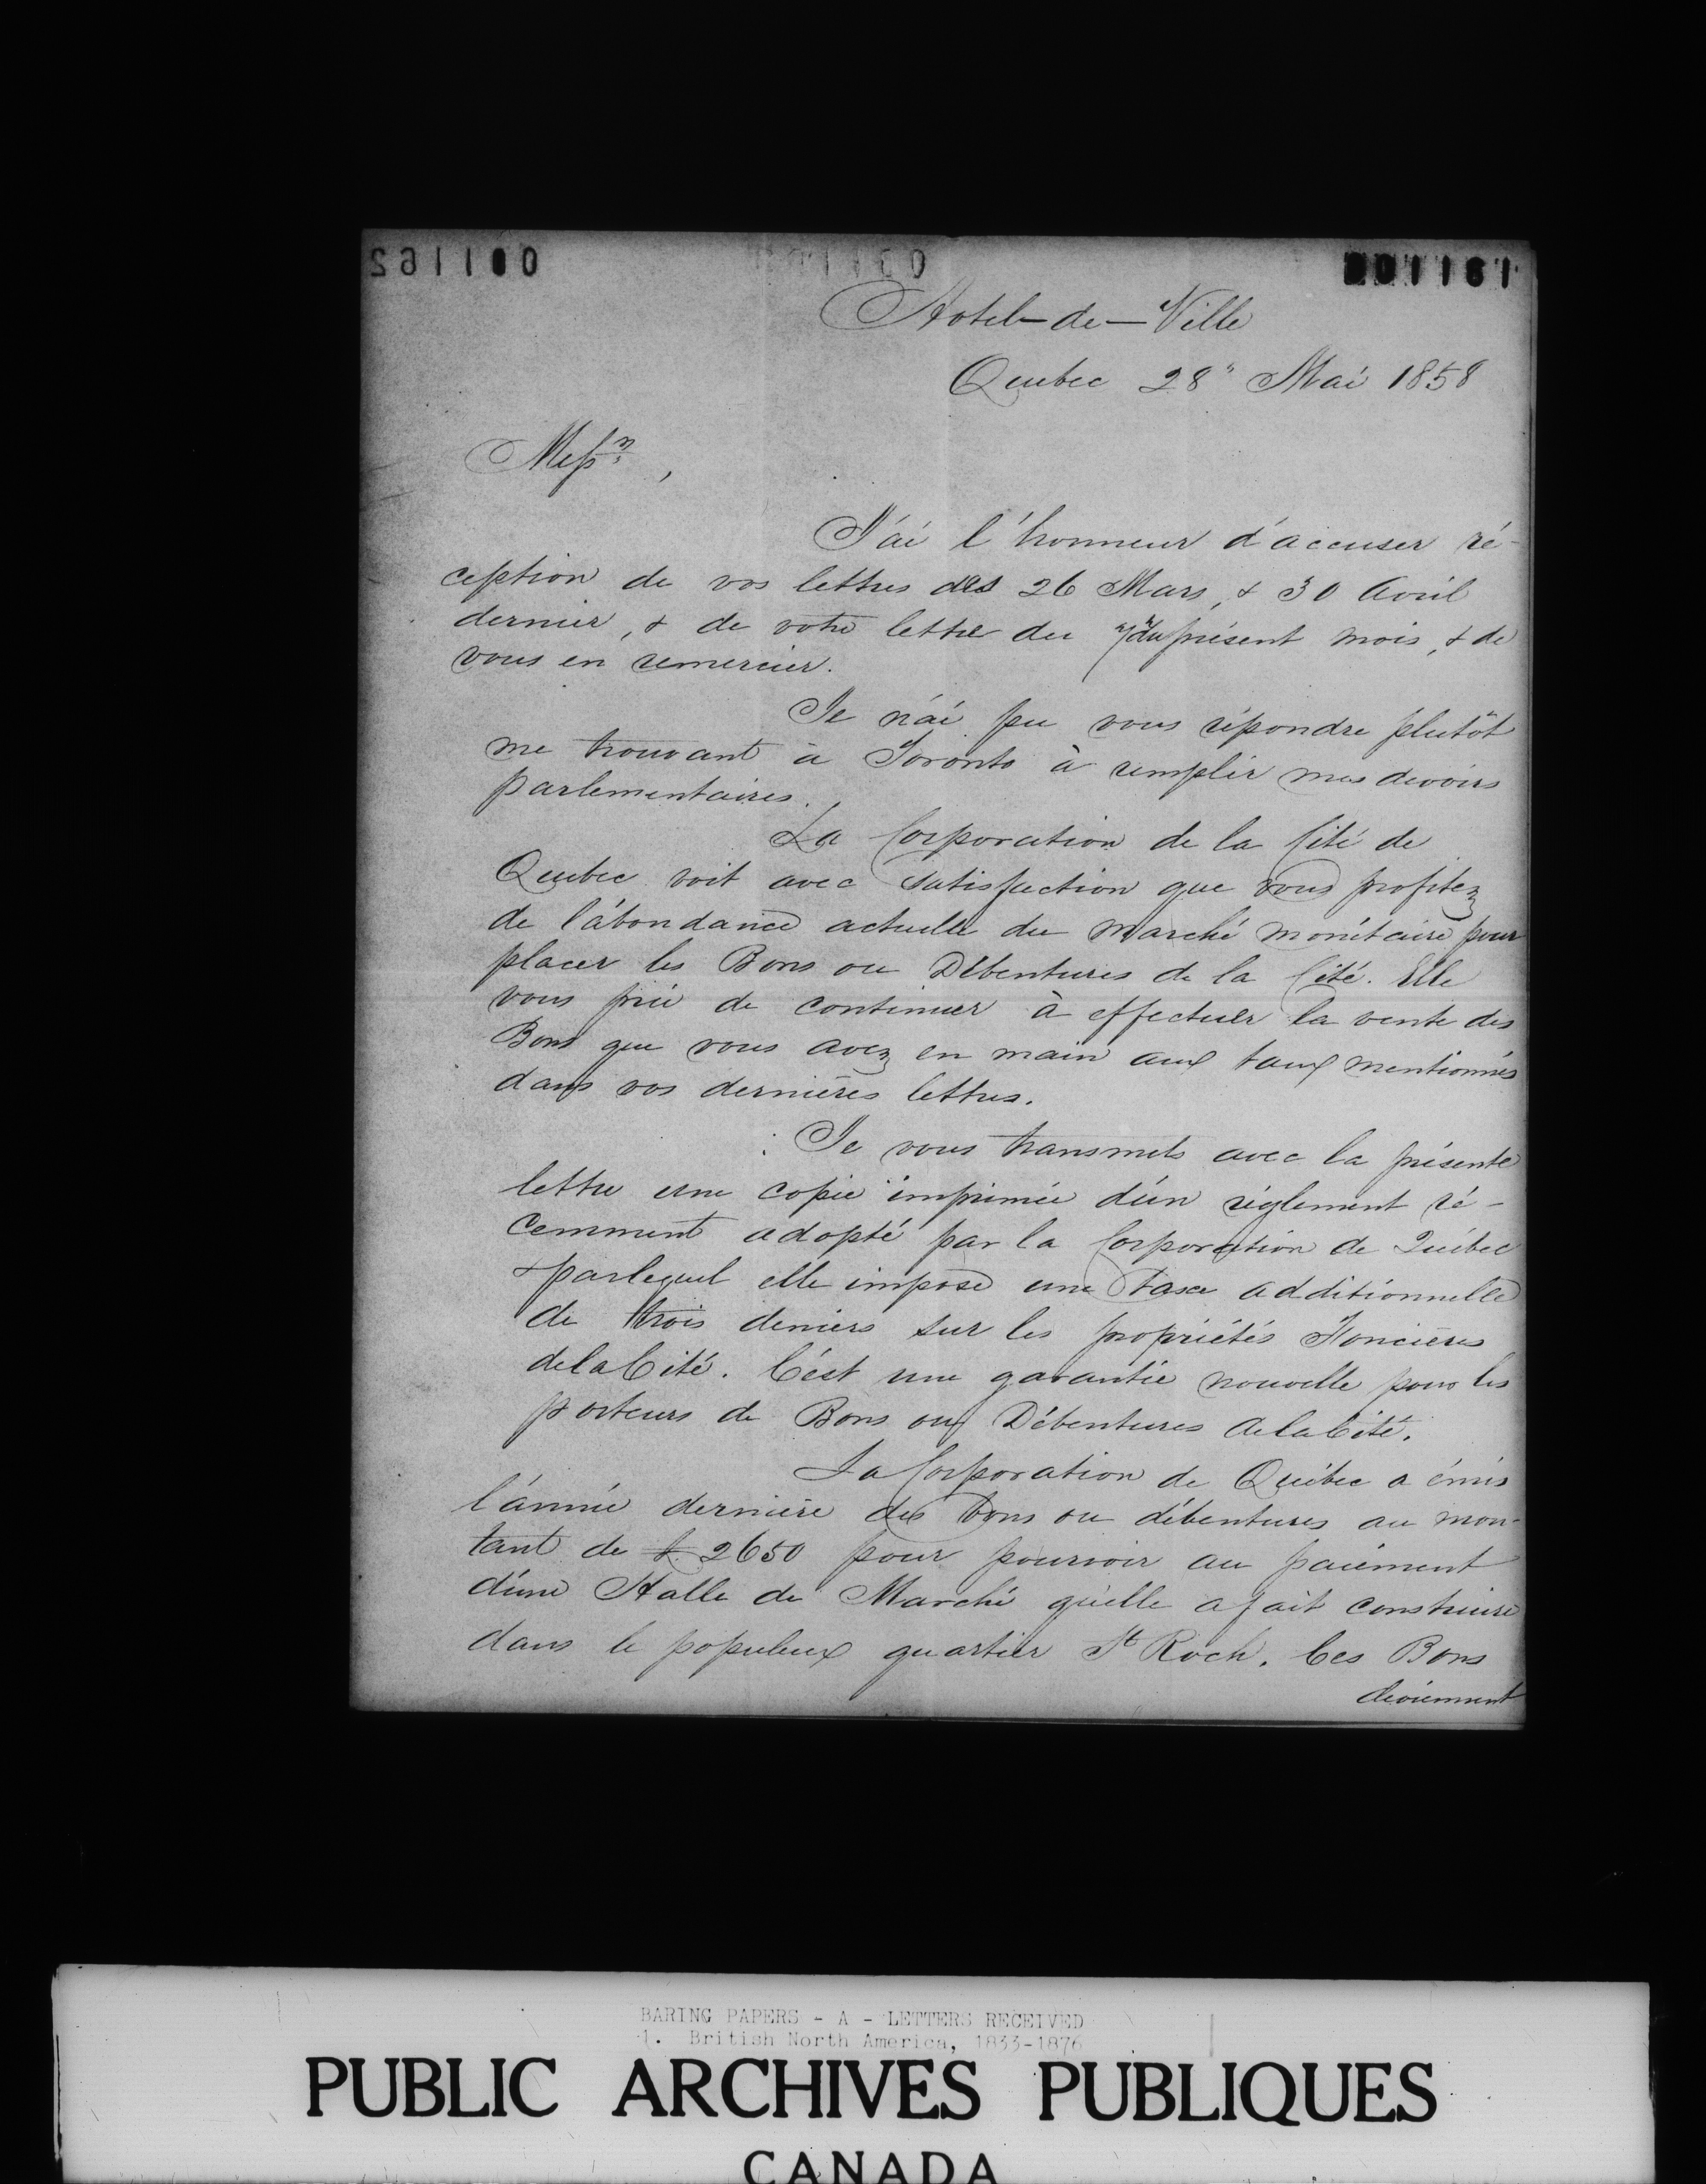 001162
001161
Hotel-de-Ville
Quebec 28" Mai 1858
Messrs,
J'ai l'honneur d'accuser ré-
ception de vos lettres des 26 Mars, & 30 Avril
dernier, & de votre lettre du 7 du présent mois, & de
vous en remercier.
Je n'ai pu vous répondre plutôt
me trouvant à Toronto à remplir mes devoirs
parlementaires.
La Corporation de la Cité de
Quebec voit avec satisfaction que vous profitez
de l'abondance actuelle du marché monétaire pour
placer les Bons ou Débentures de la Cité. Elle
vous prie de continuer à effectuer la vente des
Bons que vous avez en main aux taux mentionnés
dans vos dernières lettres.
Je vous transmets avec la présente
lettre une copie imprimée d'un réglement ré-
cemment adopté par la Corporation de Québec
& par lequel elle impose une taxe additionnelle
de trois deniers sur les propriétés Foncières
de la Cité. C'est une garantie nouvelle pour les
porteurs de Bons ou Débentures de la Cité.
La Corporation de Québec a émis
l'année dernière des Bons ou débentures au mon-
tant de £ 2650 pour pourvoir au paiement
d'une Halle de Marché qu'elle a fait construire
dans le populeux quartier St Roch. Ces Bons
deviennent
BARING PAPERS - A - LETTERS RECEIVED
1. British North America, 1833-1876
PUBLIC ARCHIVES PUBLIQUES
CANADA